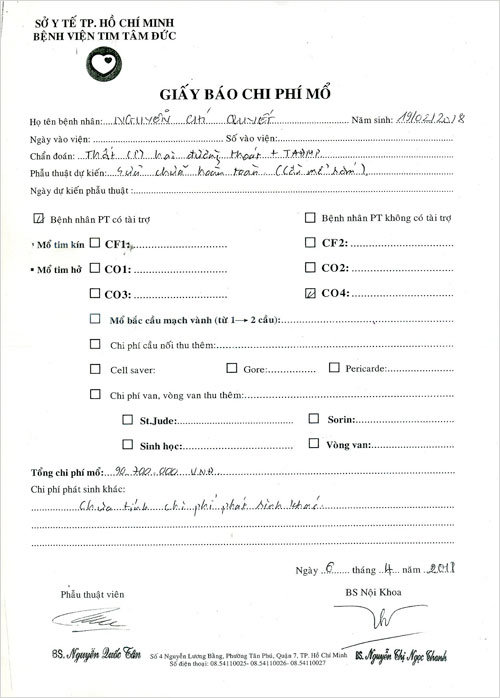 SỞ Y TẾ TP. HỒ CHÍ MINH
BỆNH VIỆN TIM TÂM ĐỨC
GIẤY BÁO CHI PHÍ MỔ
Họ tên bệnh nhân: NGUYỄN CHÍ QUYẾT Năm sinh: 19/02/2018
Ngày vào viện: Số vào viện:
Chẩn đoán: Thất (P) hai đường thoát + TAĐMP
Phẫu thuật dự kiến: Sửa chữa hoàn toàn
Ngày dự kiến phẫu thuật :
Bệnh nhân PT có tài trợ Bệnh nhân PT không có tài trợ
Mổ tim kín CF1: CF2:
• Mổ tim hở CO1: CO2:
CO3: CO4:
Mổ bắc cầu mạch vành (từ 1→ 2 cầu):
Chi phí cầu nối thu thêm:
Cell saver: Gore: Pericarde:
Chi phí van, vòng van thu thêm:
St.Jude: Sorin:
Sinh học: Vòng van:
Tổng chi phí mổ: 90.700.000 VNĐ
Chi phí phát sinh khác:
Chưa tính chi phí phát sinh khác
Ngày 6 tháng 4 năm 2018
Phẫu thuật viên BS Nội Khoa
BS. Nguyễn Quốc Tân BS. Nguyễn Thị Ngọc Thanh
Số 4 Nguyễn Lương Bằng, Phường Tân Phú, Quận 7, TP. Hồ Chí Minh
Số điện thoại: 08.54110025- 08.54110026- 08.54110036